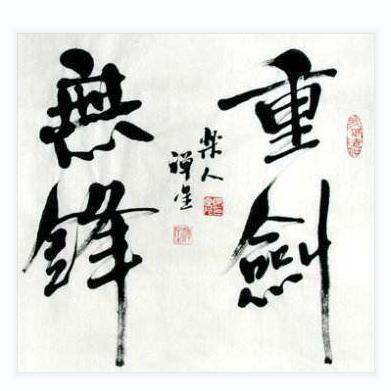 重劍
無鋒
樂人
禪星